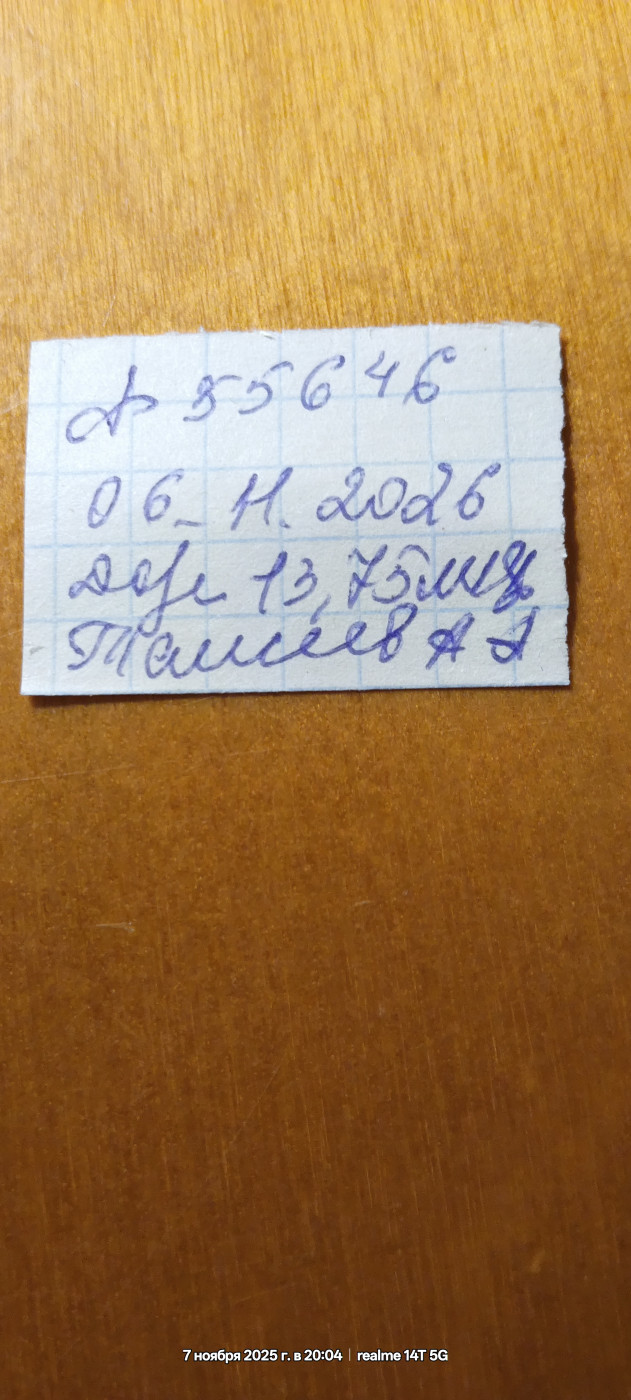 № 55646
06. 11. 2026
Доза 13,75 мкг
А А
7 ноября 2025 г. в 20:04 | realme 14T 5G